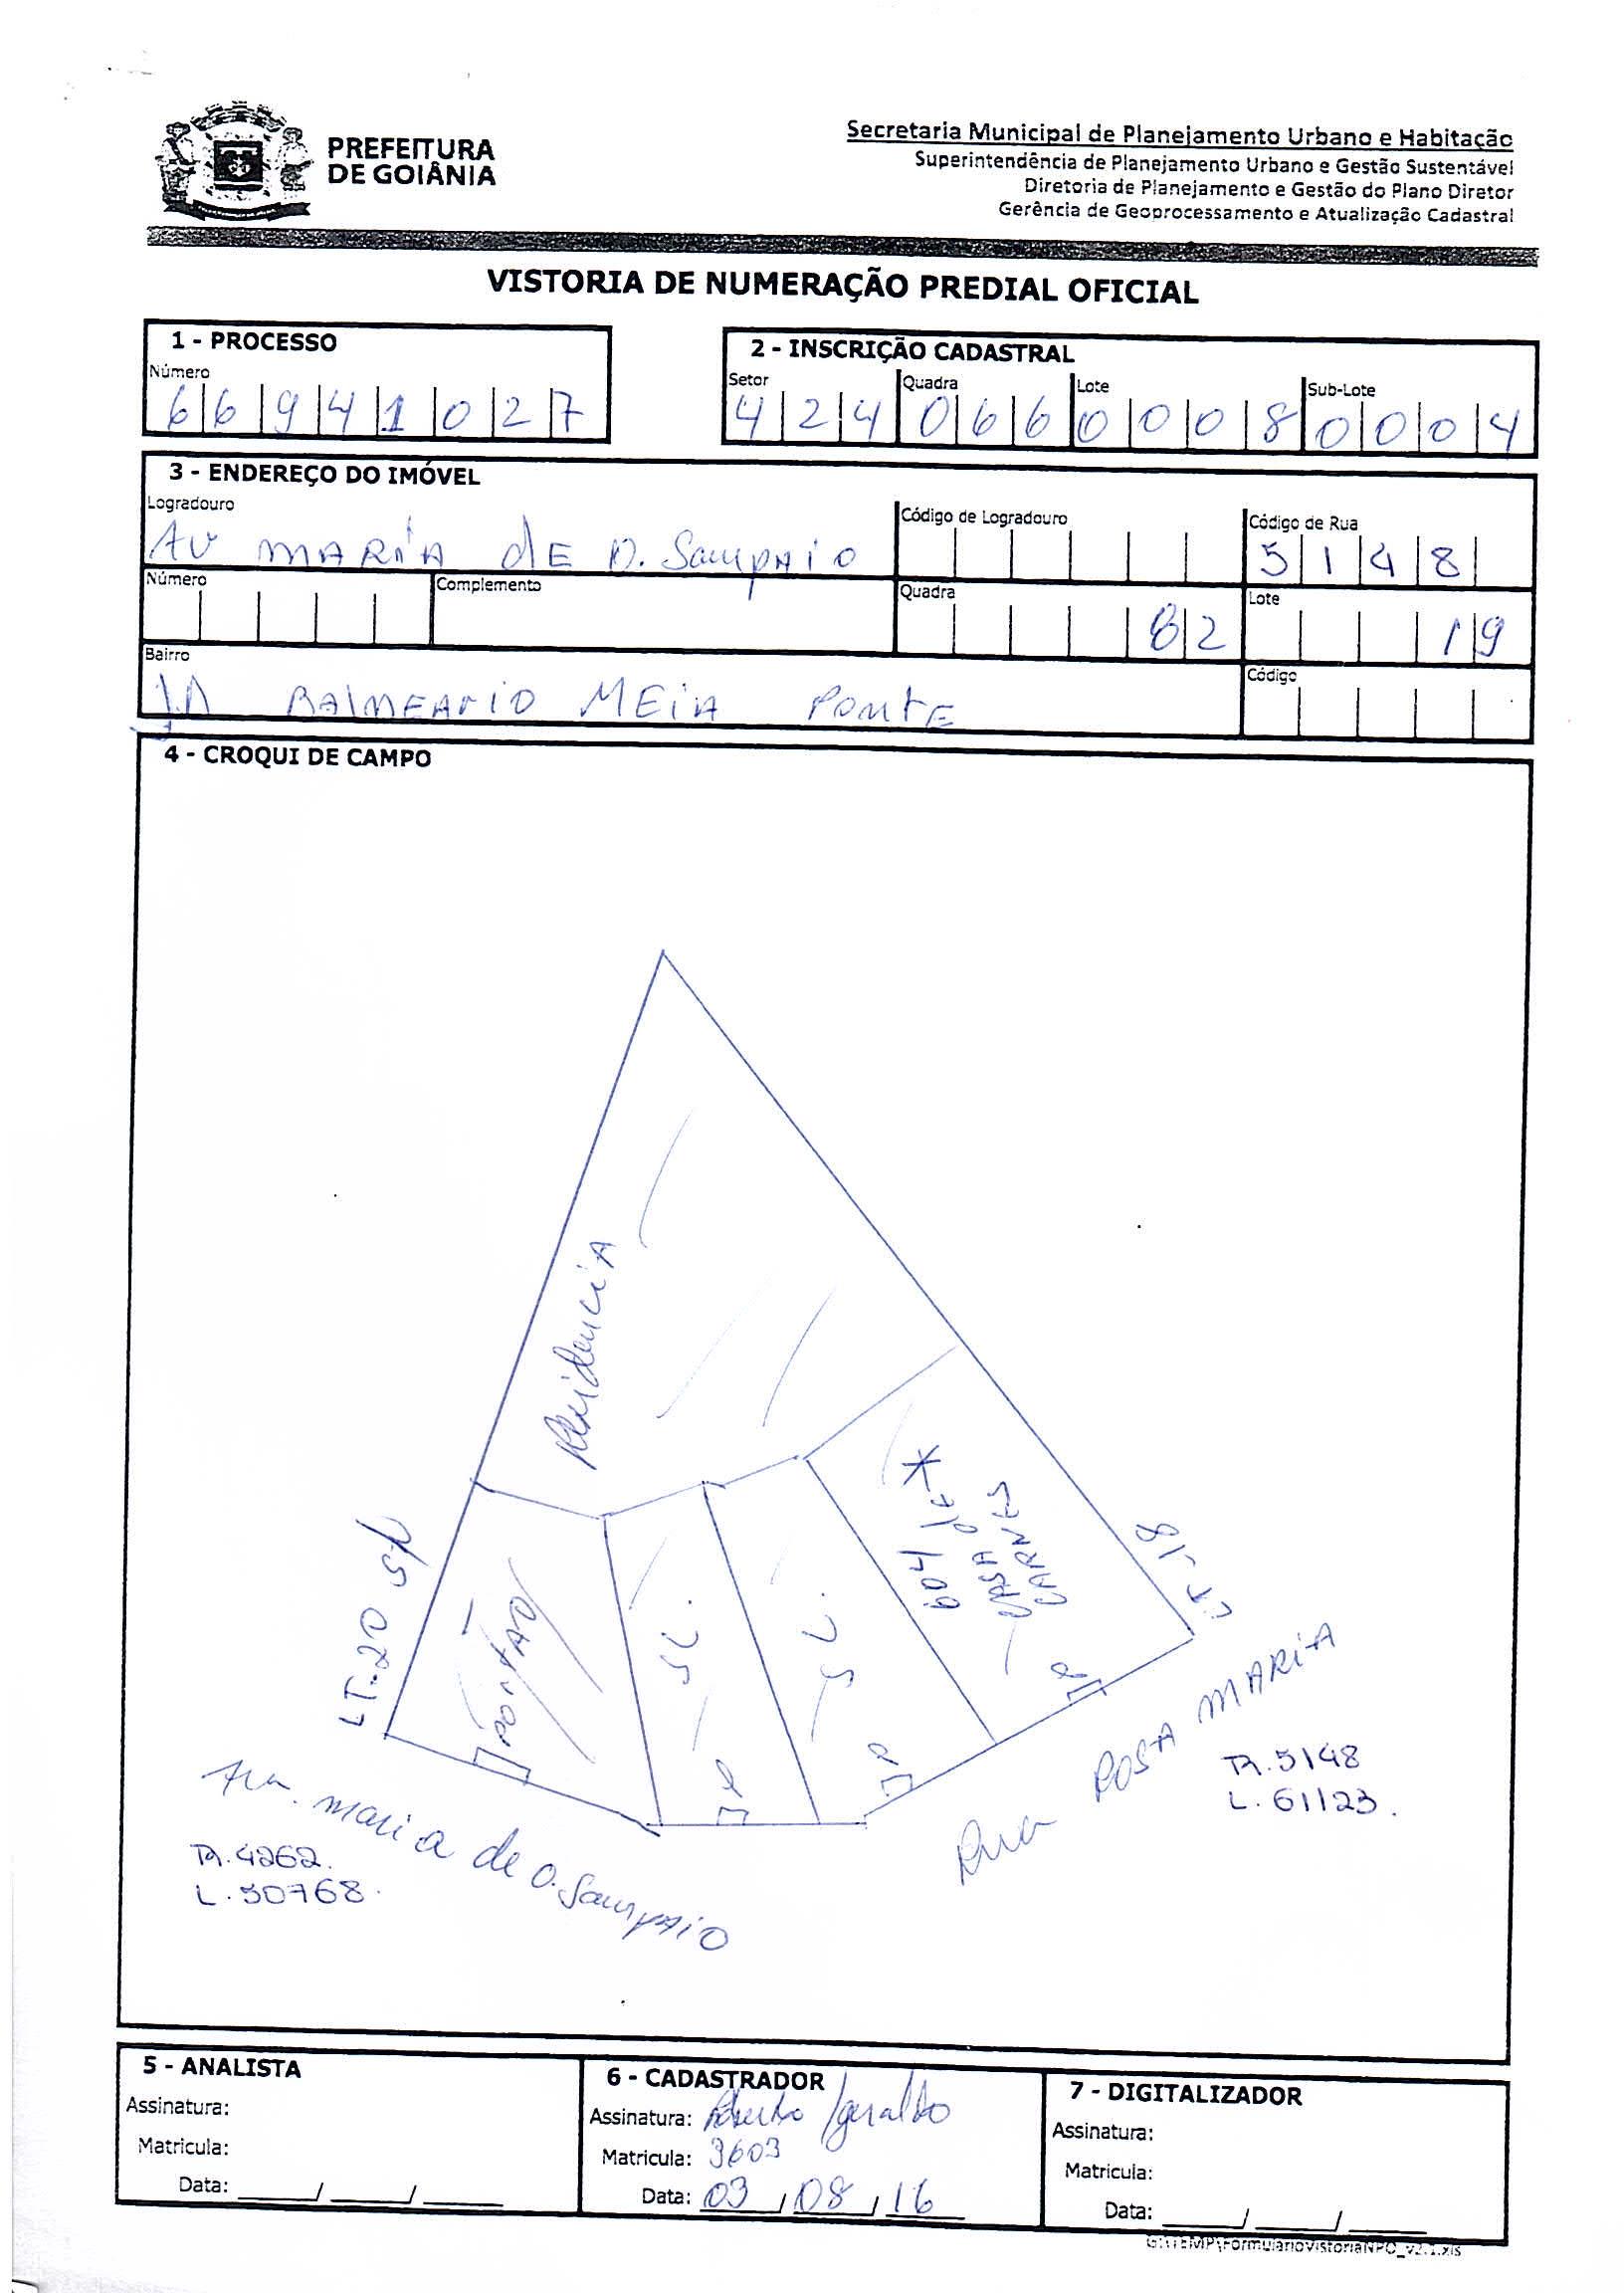 PREFEITURA
DE GOIÂNIA
Secretaria Municipal de Planejamento Urbano e Habitação
Superintendência de Planejamento Urbano e Gestão Sustentável
Diretoria de Planejamento e Gestão do Plano Diretor
Gerência de Geoprocessamento e Atualização Cadastral
VISTORIA DE NUMERAÇÃO PREDIAL OFICIAL
1 - PROCESSO
Número
6 6 9 4 1 0 2 7
2 - INSCRIÇÃO CADASTRAL
Setor Quadra Lote Sub-Lote
4 2 4 0 6 6 0 0 0 8 0 0 0 4
3 - ENDEREÇO DO IMÓVEL
Logradouro Código de Logradouro Código de Rua
AV MARIA dE O. SAMPAIO 5 1 4 8
Número Complemento Quadra Lote
82 19
Bairro Código
JD BALNEARIO MEIA PONTE
4 - CROQUI DE CAMPO
Residencia
LT-20 S/
PORTÃO
S.L.
S.L.
604 *
CASA dE
CARNES
LT-18
P
P
P
Av. maria de O. Sampaio
R.4262.
L.50768.
Rua ROSA MARIA
R.5148
L.61123.
5 - ANALISTA
Assinatura:
Matricula:
Data: ____/____/____
6 - CADASTRADOR
Assinatura: Roberto /geraldo
Matricula: 3603
Data: 03/08/16
7 - DIGITALIZADOR
Assinatura:
Matricula:
Data: ____/____/____
G:\TEMP\FormularioVistoriaNPO_v2.1.xls